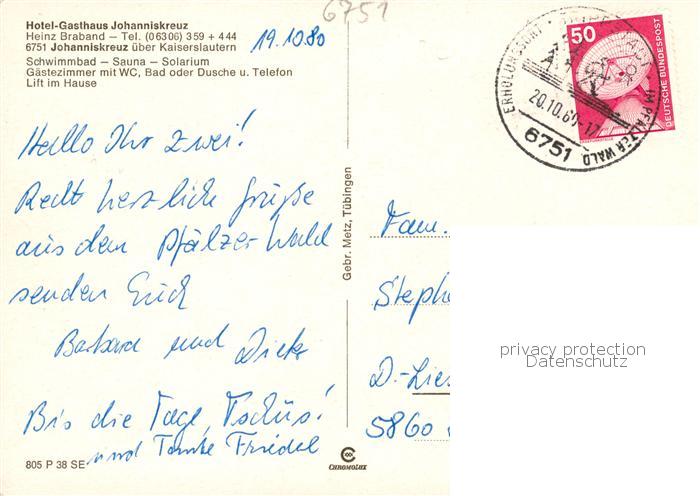 6751
Hotel-Gasthaus Johanniskreuz
Heinz Braband — Tel. (06306) 359 + 444
6751 Johanniskreuz über Kaiserslautern
Schwimmbad — Sauna — Solarium
Gästezimmer mit WC, Bad oder Dusche u. Telefon
Lift im Hause
19.10.80
50
DEUTSCHE BUNDESPOST
ERHOLUNGSORT
IM PFÄLZER WALD
20.10.80-17
6751
Hallo Ihr zwei!
Recht herzliche Grüße
aus dem Pfälzer Wald
senden Euch
Barbara und Dieter
Bis die Tage, Tschüs!
und Tante Friedel
Gebr. Metz, Tübingen
Fam.
Steph
D.-Lies
5860
privacy protection
Datenschutz
805 P 38 SE
CHROMOLUX